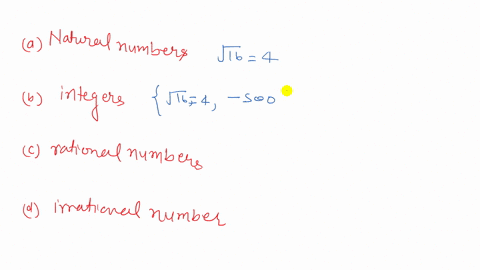 (a) Natural numbers √16 = 4
(b) integers {√16=4, -500
(c) rational numbers
(d) irrational number